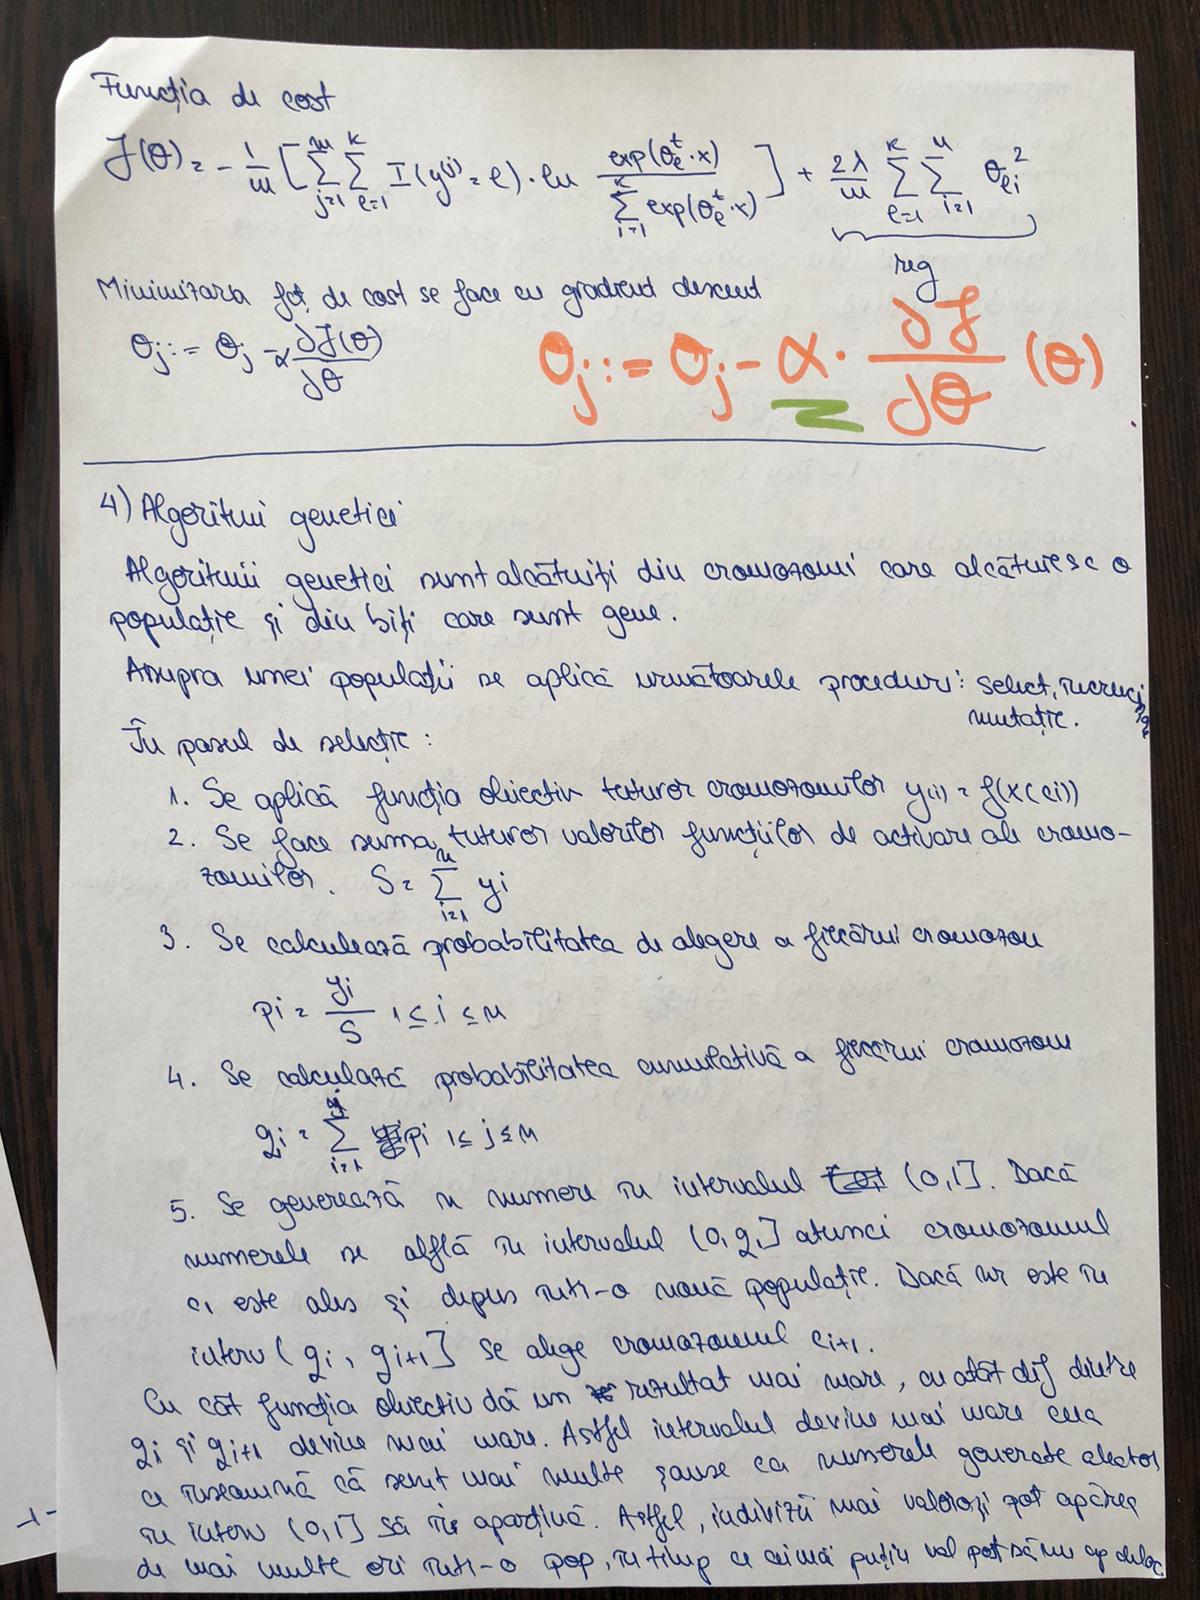 Funcția de cost
J(θ) = - 1/m [ m∑j=1 k∑l=1 I(y^(j) = l) · ln exp(θ_l^t · x) / k∑i=1 exp(θ_l^t · x) ] + 2λ/m k∑l=1 n∑i=1 θ_li^2
reg
Minimizarea fct. de cost se face cu gradient descent
θj := θj - α ∂J(θ)/∂θ
θj := θj - α · ∂J/∂θ (θ)
4) Algoritmi genetici
Algoritmii genetici sunt alcătuiți din cromozomi care alcătuiesc o
populație și din biți care sunt gene.
Asupra unei populații se aplică următoarele proceduri: select, încrucișare
mutație.
În pasul de selecție:
1. Se aplică funcția obiectiv tuturor cromozomilor y(i) = f(x(ci))
2. Se face suma tuturor valorilor funcțiilor de activare ale cromo-
zomilor. S = n∑i=1 yi
3. Se calculează probabilitatea de alegere a fiecărui cromozom
pi = yi/S 1 ≤ i ≤ n
4. Se calculază probabilitatea cumulativă a fiecărui cromozom
qi = j∑i=1 pi 1 ≤ j ≤ n
5. Se generează n numere în intervalul (0,1]. Dacă
numerele se alflă în intervalul (0,q1] atunci cromozomul
c1 este ales și depus într-o nouă populație. Dacă nr este în
interv (qi, qi+1] se alege cromozomul ci+1.
Cu cât funcția obiectiv dă un rezultat mai mare, cu atât dif dintre
qi și qi+1 devine mai mare. Astfel intervalul devine mai mare ceea
ce înseamnă că sunt mai multe șanse ca numerele generate aleator
în interv (0,1] să îi aparțină. Astfel, indivizii mai valoroși pot apărea
de mai multe ori într-o pop, în timp ce cei mai puțin val pot să nu ap deloc